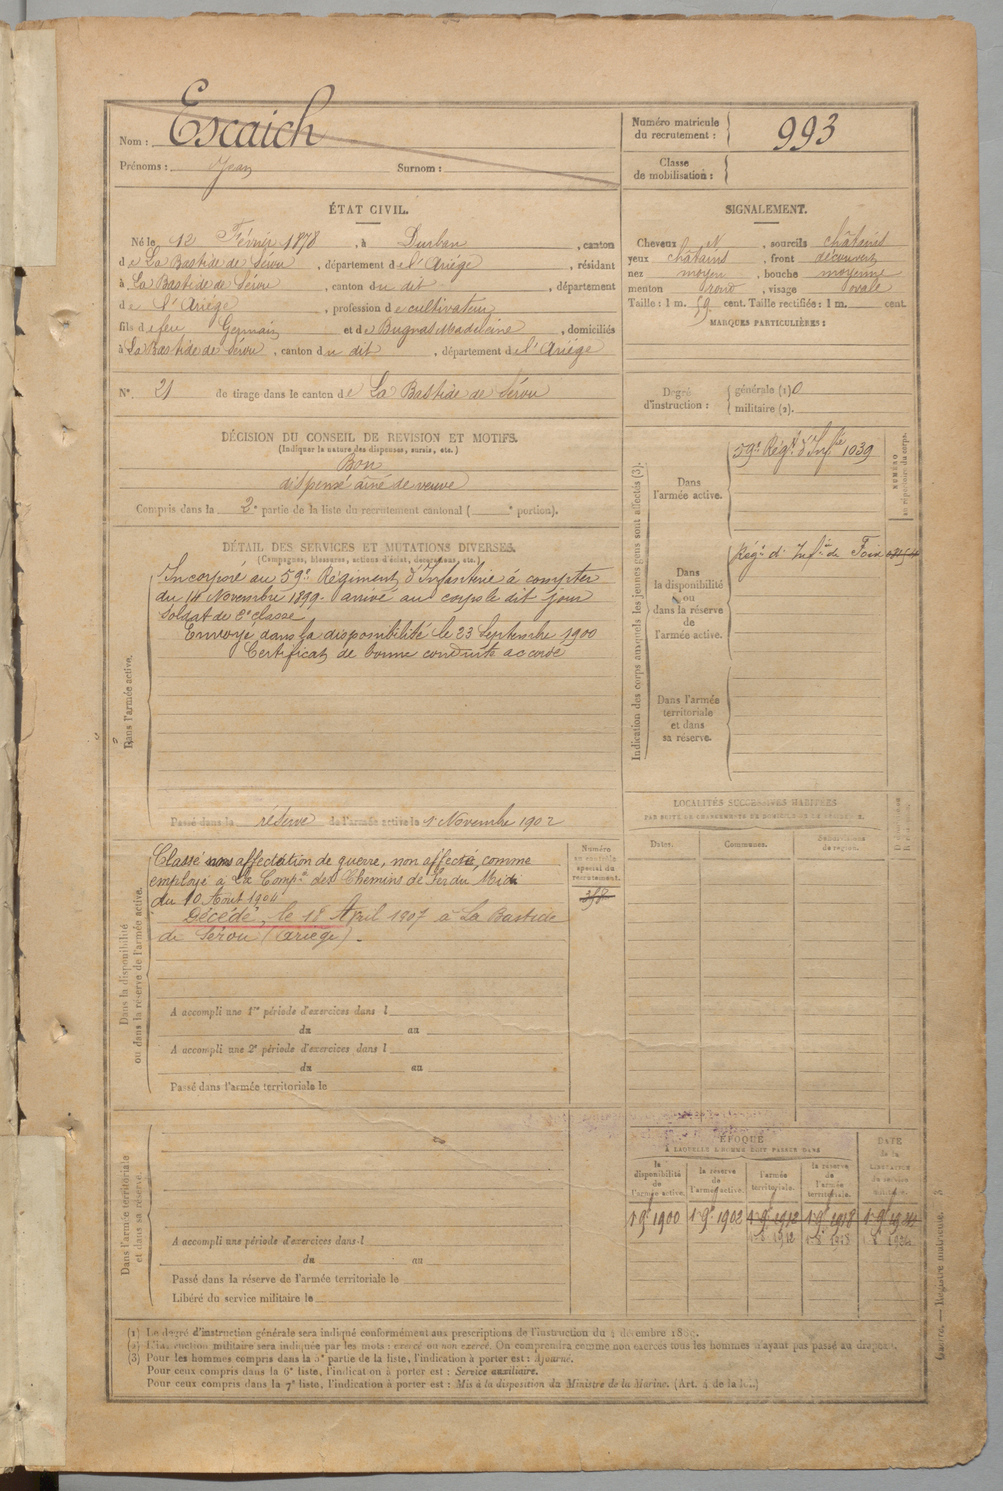 Nom : Escaich
Prénoms : Jean Surnom :
Numéro matricule du recrutement : 993
Classe de mobilisation :
ÉTAT CIVIL.
Né le 12 Février 1878, à Durban, canton
de La Bastide de Sérou, département de l'Ariège, résidant
à La Bastide de Sérou, canton du dit, département
de l'Ariège, profession de cultivateur
fils de feu Germain et de Bugnas Madeleine, domiciliés
à La Bastide de Sérou, canton du dit, département de l'Ariège
N° 21 de tirage dans le canton de La Bastide de Sérou
SIGNALEMENT.
Cheveux N, sourcils châtains
yeux châtains, front découvert
nez moyen, bouche moyenne
menton rond, visage ovale
Taille : 1 m. 59 cent. Taille rectifiée : 1 m. cent.
MARQUES PARTICULIÈRES :
Degré d'instruction :
générale (1) 0
militaire (2).
DÉCISION DU CONSEIL DE REVISION ET MOTIFS.
(Indiquer la nature des dispenses, sursis, etc.)
Bon
dispensé aîné de veuve
Compris dans la 2e partie de la liste du recrutement cantonal ( e portion).
DÉTAIL DES SERVICES ET MUTATIONS DIVERSES.
(Campagnes, blessures, actions d'éclat, décorations, etc.)
Dans l'armée active.
Incorporé au 59e Régiment d'Infanterie à compter
du 14 Novembre 1899. arrivé au corps le dit jour
Soldat de 2e classe
Envoyé dans la disponibilité le 23 Septembre 1900
Certificat de bonne conduite accordé
Passé dans la réserve de l'armée active le 1r Novembre 1902
Indication des corps auxquels les jeunes gens sont affectés (3).
NUMÉRO au répertoire du corps.
Dans l'armée active.
59e Régt d'Infie 1039
Dans la disponibilité ou dans la réserve de l'armée active.
Régt d'Infie de Foix
Dans l'armée territoriale et dans sa réserve.
Dans la disponibilité ou dans la réserve de l'armée active.
Classé affectation de guerre, non affecté, comme
employé à la Compie des Chemins de Fer du Midi
du 10 Août 1904
Décédé, le 18 Avril 1907 à La Bastide
de Sérou (Ariège).
Numéro au contrôle spécial du recrutement.
358
A accompli une 1re période d'exercices dans l
du au
A accompli une 2e période d'exercices dans l
du au
Passé dans l'armée territoriale le
LOCALITÉS SUCCESSIVES HABITÉES
PAR SUITE DE CHANGEMENTS DE DOMICILE OU DE RÉSIDENCE.
Dates. Communes. Subdivisions de région.
Dans l'armée territoriale et dans sa réserve.
A accompli une période d'exercices dans l
du au
Passé dans la réserve de l'armée territoriale le
Libéré du service militaire le
ÉPOQUE
À LAQUELLE L'HOMME DOIT PASSER DANS
la disponibilité de l'armée active.
la réserve de l'armée active.
l'armée territoriale.
la réserve de l'armée territoriale.
DATE de la LIBÉRATION du service militaire.
1r 9bre 1900 1r 9bre 1902 1r 9bre 1912 1r 9bre 1918 1r 9bre 1924
(1) Le degré d'instruction générale sera indiqué conformément aux prescriptions de l'instruction du 4 décembre 1889.
(2) L'instruction militaire sera indiquée par les mots : exercé ou non exercé. On comprendra comme non exercés tous les hommes n'ayant pas passé au drapeau.
(3) Pour les hommes compris dans la 5e partie de la liste, l'indication à porter est : Ajourné.
Pour ceux compris dans la 6e liste, l'indication à porter est : Service auxiliaire.
Pour ceux compris dans la 7e liste, l'indication à porter est : Mis à la disposition du Ministre de la Marine. (Art. 4 de la loi.)
Guerre. — Registre matricule.